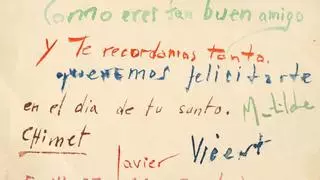 Como eres tan buen amigo
y Te recordamos tanto.
queremos felicitarte
en el dia de tu santo. Matilde
CHIMET
Javier Vicent